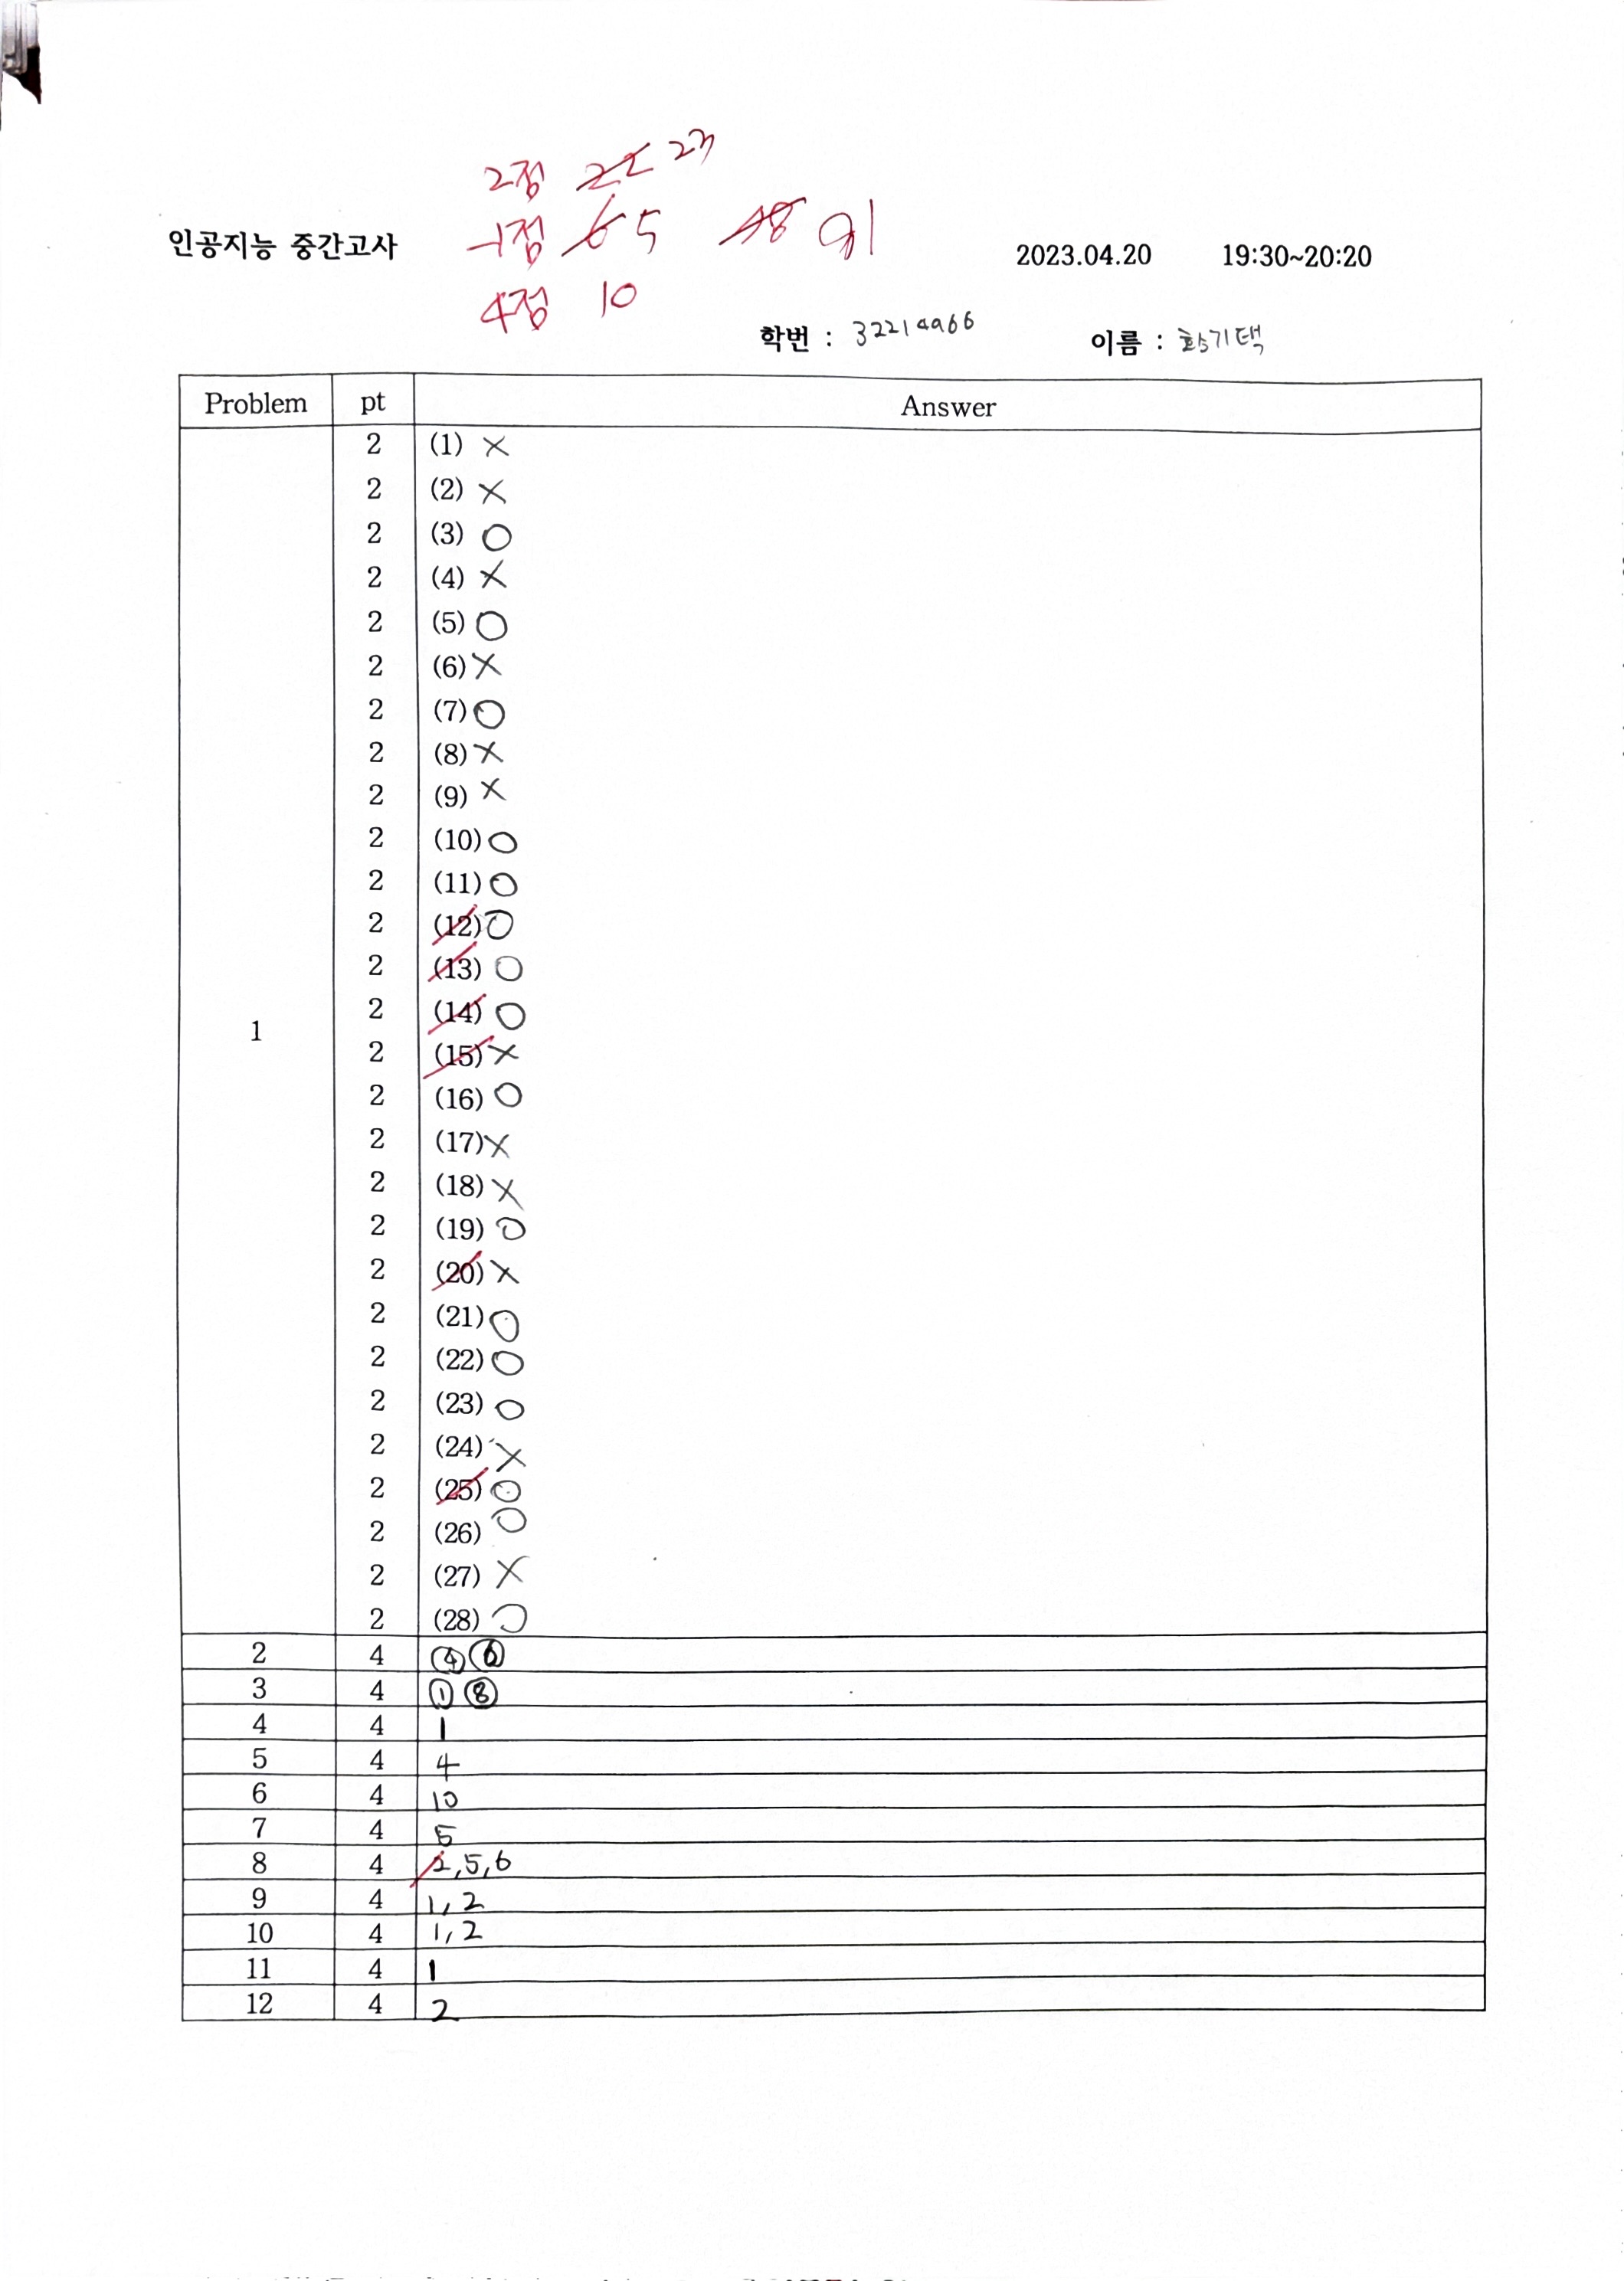 2점 22 23
인공지능 중간고사 -1점 6 5 48 91 2023.04.20 19:30~20:20
4점 10
학번 : 32214966 이름 : 황기택
Problem pt Answer
2 (1) X
2 (2) X
2 (3) O
2 (4) X
2 (5) O
2 (6) X
2 (7) O
2 (8) X
2 (9) X
2 (10) O
2 (11) O
2 (12) O
2 (13) O
2 (14) O
1 2 (15) X
2 (16) O
2 (17) X
2 (18) X
2 (19) O
2 (20) X
2 (21) O
2 (22) O
2 (23) O
2 (24) X
2 (25) O
2 (26) O
2 (27) X
2 (28) O
2 4 ④ ⑥
3 4 ① ⑧
4 4 1
5 4 4
6 4 10
7 4 5
8 4 2,5,6
9 4 1,2
10 4 1,2
11 4 1
12 4 2